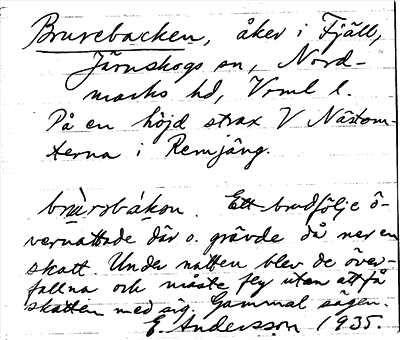 Brurebacken, åker i Fjäll,
Järnskogs sn, Nord-
marks hd, Vrml l.
På en höjd strax V Nästom-
terna i Remjäng.
brùrəbákən. Ett brudfölje ö-
vernattade där o. grävde då ner en
skatt. Under natten blev de över-
fallna och måste fly utan att få
skatten med sig. Gammal sägen.
E. Andersson 1935.